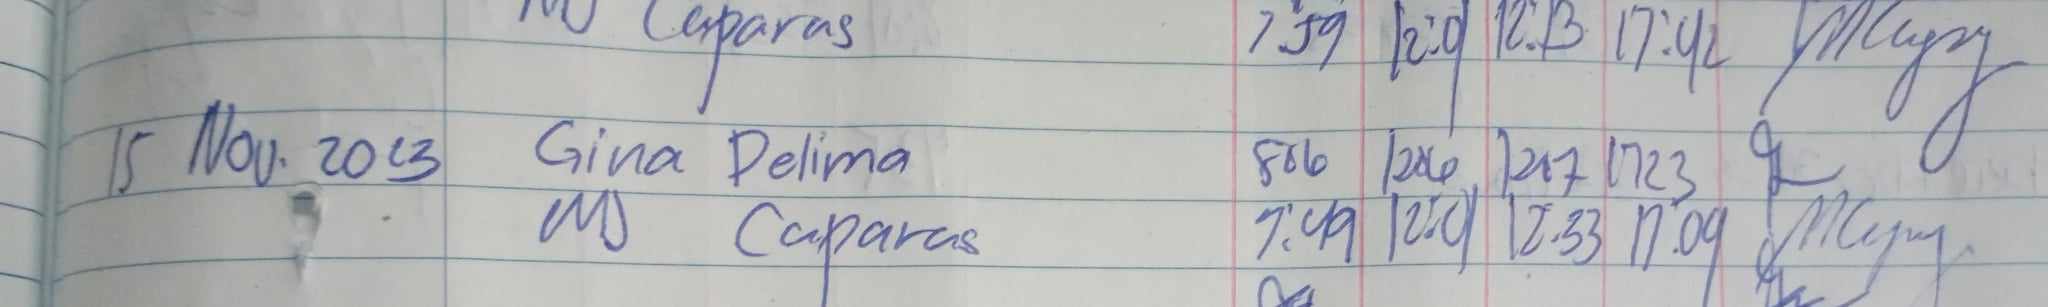 MJ Caparas 7:59 12:01 12:13 17:42
15 Nov. 2023 Gina Delima 806 1206 1207 1723
MJ Caparas 7:49 12:01 12:33 17:09